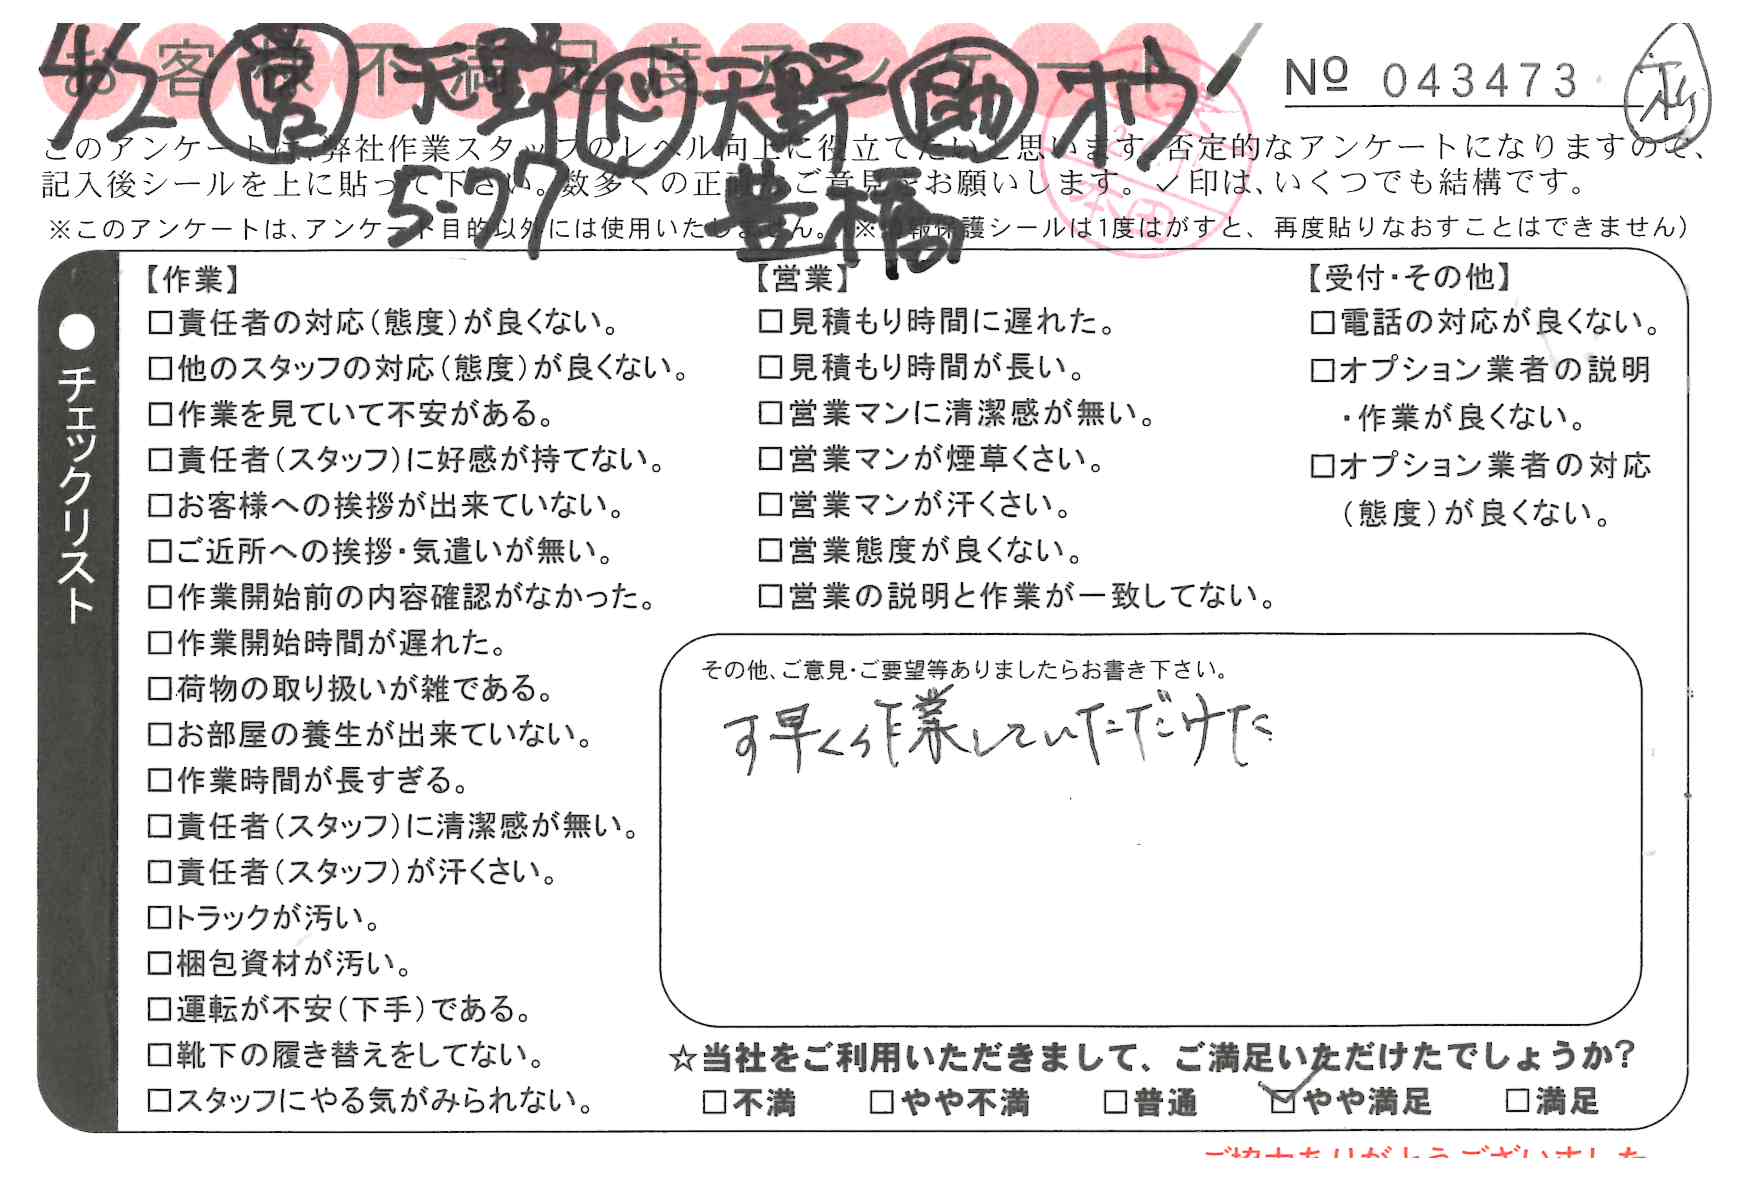 お客様不満足度アンケート
4/2 営 天野 ド 天野 助 オウ
№ 043473
このアンケートは、弊社作業スタッフのレベル向上に役立てたいと思います。否定的なアンケートになりますので、
5-77 豊橋
記入後シールを上に貼って下さい。数多くの正直なご意見をお願いします。✓印は、いくつでも結構です。
※このアンケートは、アンケート目的以外には使用いたしません。(※情報保護シールは1度はがすと、再度貼りなおすことはできません)
●チェックリスト
【作業】
□責任者の対応(態度)が良くない。
□他のスタッフの対応(態度)が良くない。
□作業を見ていて不安がある。
□責任者(スタッフ)に好感が持てない。
□お客様への挨拶が出来ていない。
□ご近所への挨拶・気遣いが無い。
□作業開始前の内容確認がなかった。
□作業開始時間が遅れた。
□荷物の取り扱いが雑である。
□お部屋の養生が出来ていない。
□作業時間が長すぎる。
□責任者(スタッフ)に清潔感が無い。
□責任者(スタッフ)が汗くさい。
□トラックが汚い。
□梱包資材が汚い。
□運転が不安(下手)である。
□靴下の履き替えをしてない。
□スタッフにやる気がみられない。
【営業】
□見積もり時間に遅れた。
□見積もり時間が長い。
□営業マンに清潔感が無い。
□営業マンが煙草くさい。
□営業マンが汗くさい。
□営業態度が良くない。
□営業の説明と作業が一致してない。
【受付・その他】
□電話の対応が良くない。
□オプション業者の説明
・作業が良くない。
□オプション業者の対応
(態度)が良くない。
その他、ご意見・ご要望等ありましたらお書き下さい。
す早く作業していただけた
☆当社をご利用いただきまして、ご満足いただけたでしょうか?
□不満 □やや不満 □普通 ☑やや満足 □満足
ご協力ありがとうございました